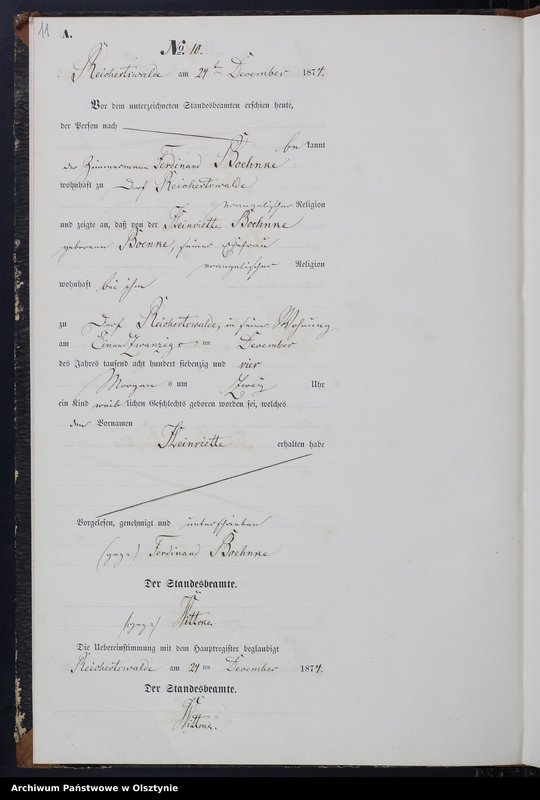 11
A.
No. 10.
Reichertswalde am 24ten December 1874.
Vor dem unterzeichneten Standesbeamten erschien heute,
der Person nach
be kannt
der Zimmermann Ferdinand Boehnke
wohnhaft zu Dorf Reichertswalde
evangelischer Religion
und zeigte an, daß von der Heinriette Boehnke
geborenen Boenke, seiner Ehefrau
evangelischer Religion
wohnhaft bei ihm
zu Dorf Reichertswalde, in seiner Wohnung
am Einundzwanzigsten December
des Jahres tausend acht hundert siebenzig und vier
Morgens um Zwei Uhr
ein Kind weiblichen Geschlechts geboren worden sei, welches
den Vornamen
Heinriette erhalten habe
Vorgelesen, genehmigt und unterschrieben
(gez.) Ferdinand Boehnke
Der Standesbeamte.
(gez.) Wittke.
Die Uebereinstimmung mit dem Hauptregister beglaubigt
Reichertswalde am 24ten December 1874.
Der Standesbeamte.
Archiwum Państwowe w Olsztynie